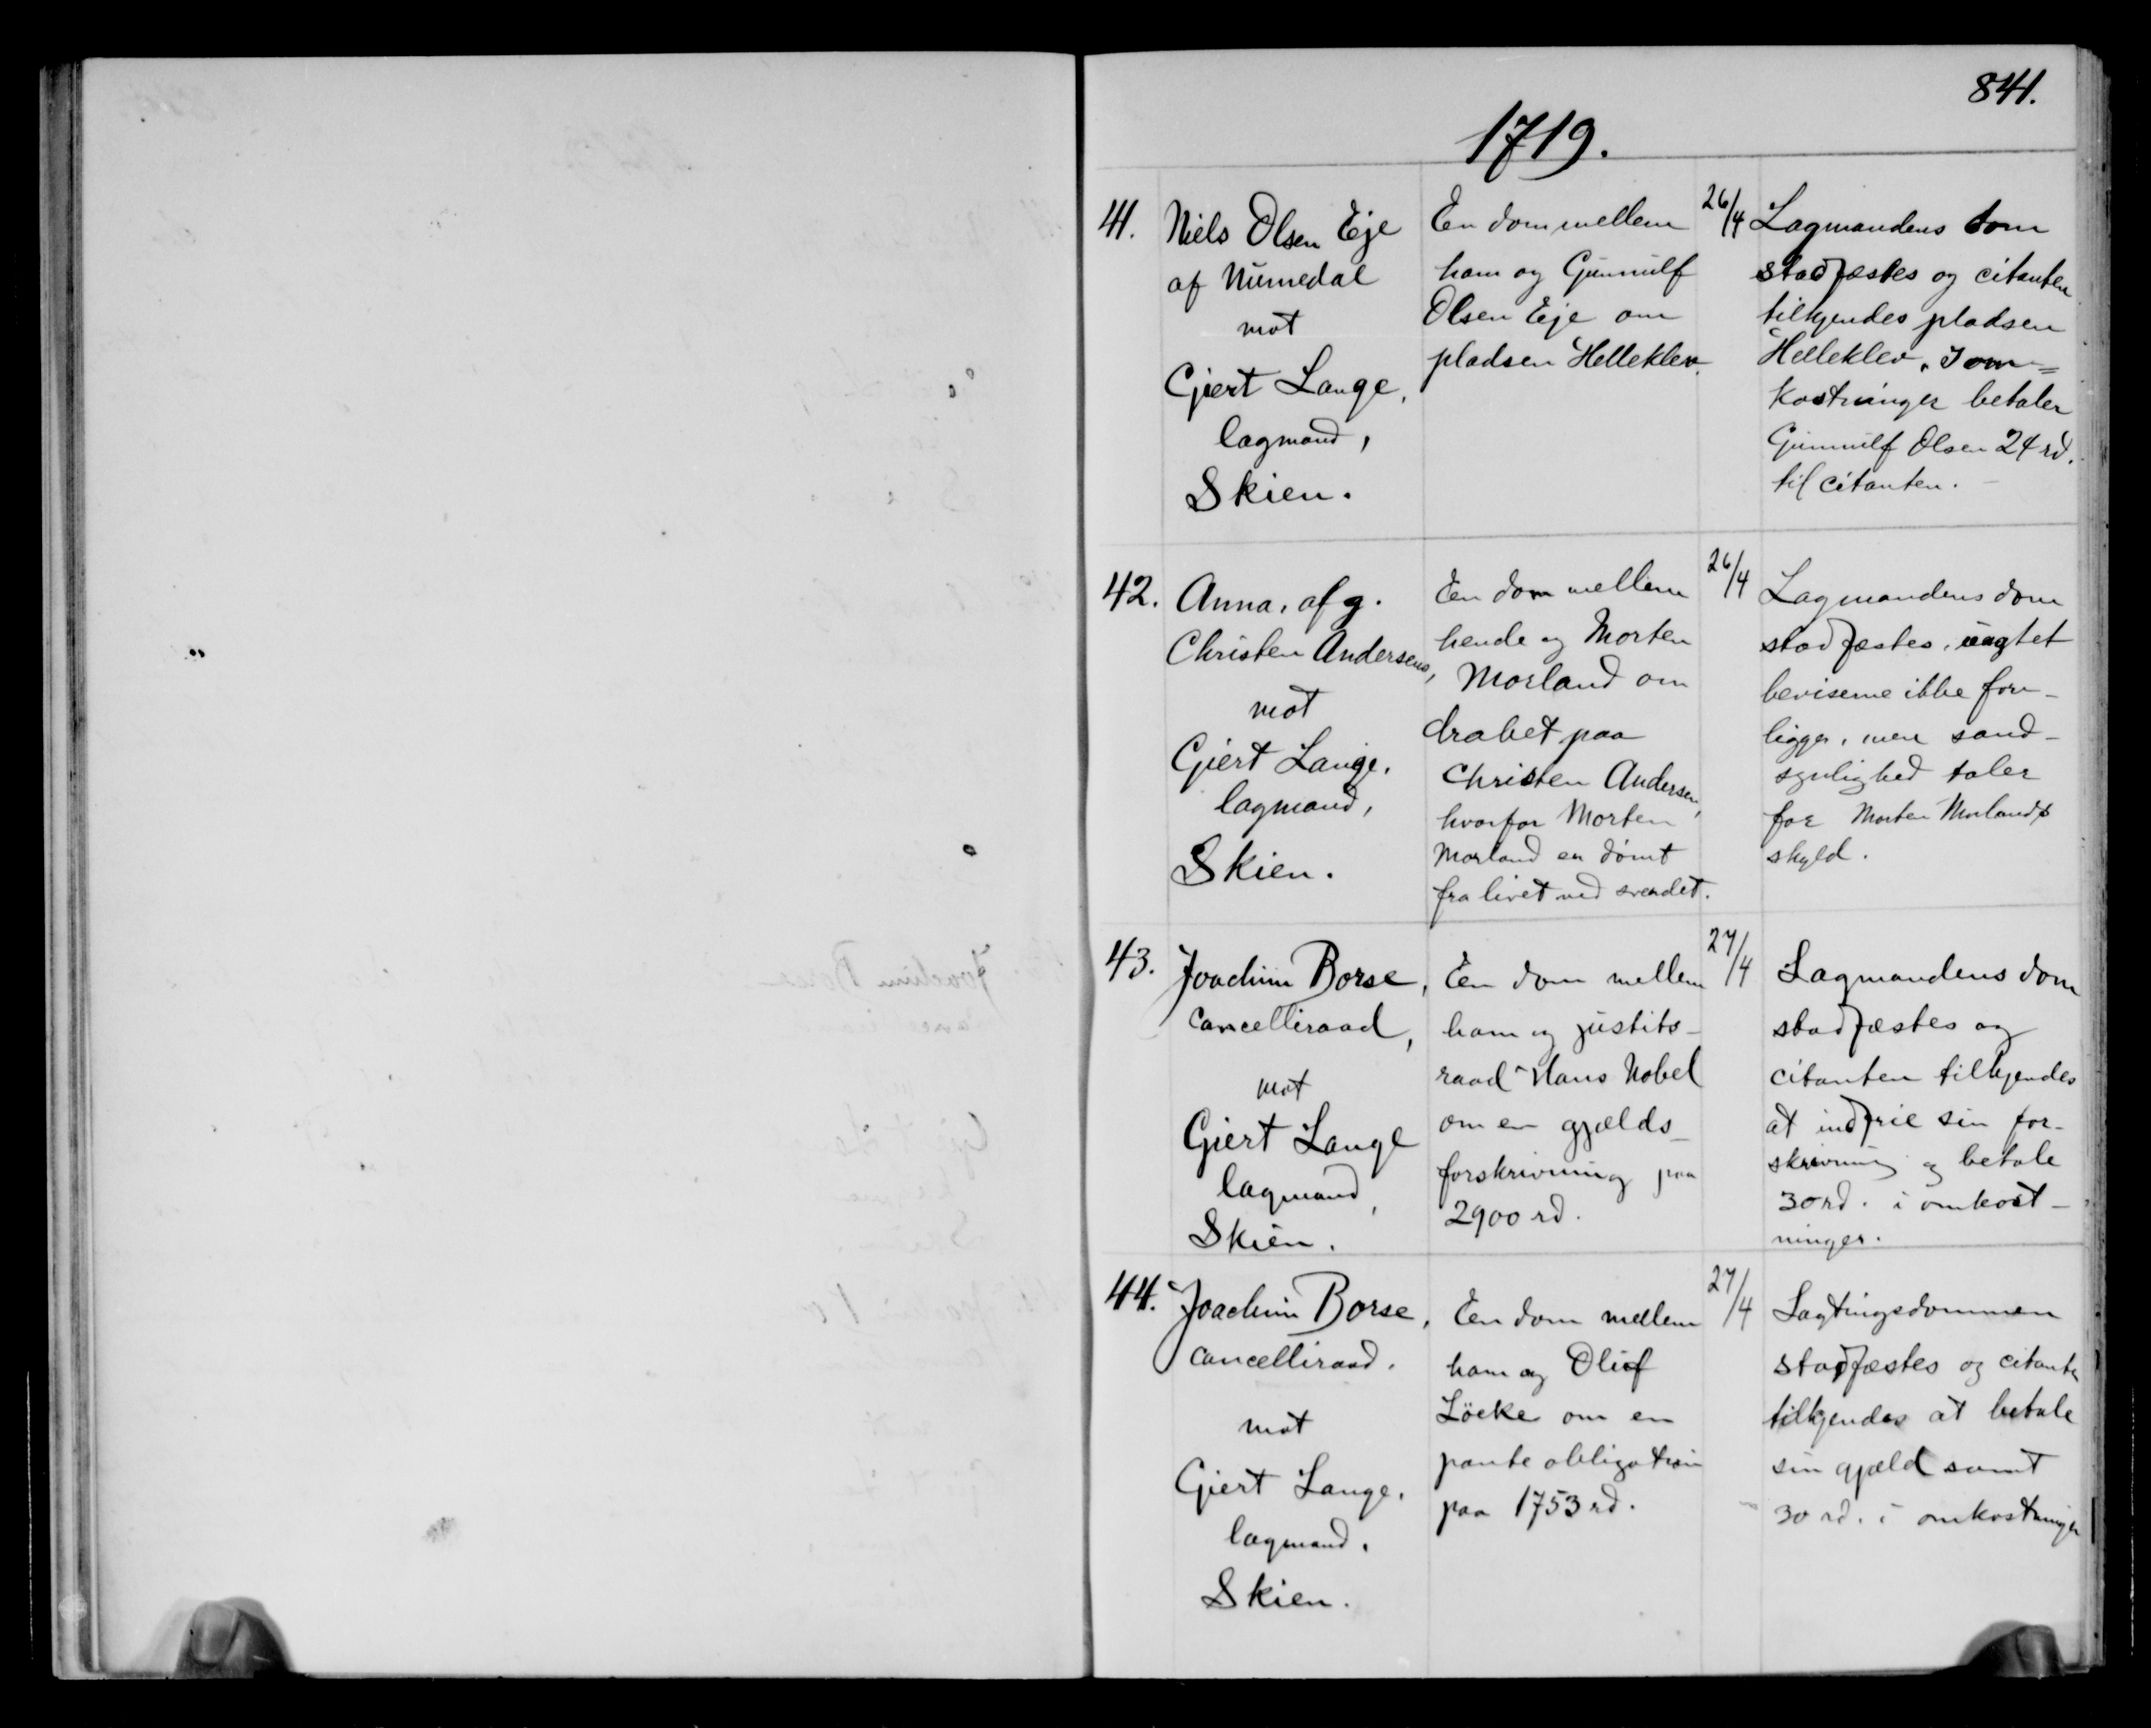 841.
1719.
41.
Niels Olsen Eje
af Numedal
mot
Gjert Lange,
lagmand,
Skien.
En dom mellem
ham og Gunnulf
Olsen Eje om
pladsen Helleklev.
26/4
Lagmandens dom
stadfæstes og citanten
tilkjendes pladsen
Helleklev. I om=
kostninger betaler
Gunnulf Olsen 24 rd.
til citanten.
42.
Anna, afg.
Christen Andersens,
mot
Gjert Lange,
lagmand,
Skien.
En dom mellem
hende og Morten
Morland om
drabet paa
Christen Andersen,
hvorfor Morten
Morland er dømt
fra livet ved sverdet.
26/4
Lagmandens dom
stadfæstes, uagtet
beviserne ikke fore-
ligger, men sand-
synlighed taler
for Morten Morlands
skyld.
43.
Joachim Borse,
cancelliraad,
mot
Gjert Lange
lagmand,
Skien.
En dom mellem
ham og justits-
raad Hans Nobel
om en gjælds-
forskrivning paa
2900 rd.
27/4
Lagmandens dom
stadfæstes og
citanten tilkjendes
at indfrie sin for-
skrivning og betale
30 rd. i omkost-
ninger.
44.
Joachim Borse,
cancelliraad.
mot
Gjert Lange,
lagmand,
Skien.
En dom mellem
ham og Oluf
Löcke om en
pante obligation
paa 1753 rd.
27/4
Lagtingsdommen
stadfæstes og citanten
tilkjendes at betale
sin gjæld samt
30 rd. i omkostninger